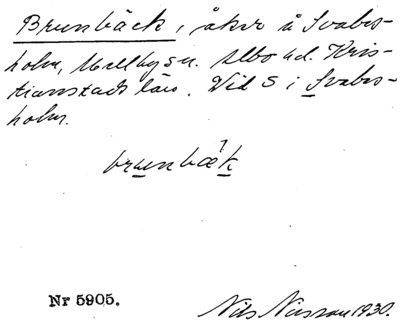 Brunbäck, åker å Svabes-
holm, Mellby sn. Albo hd. Kris-
tianstads län. Vid S i Svabes-
holm.
brunbæ´k
Nr 5905.
Nils Nilsson 1930.